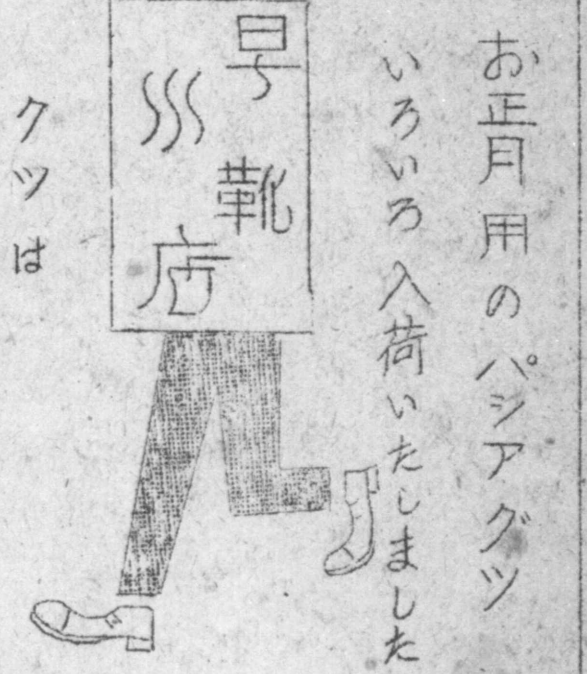 お正月用のパシアグツ
いろいろ入荷いたしました
早川靴店
クツは